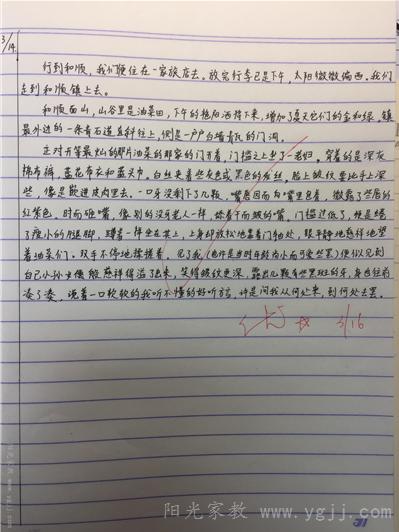 3/14
行到和顺，我们便住在一家旅店去。放完行李已是下午，太阳微微偏西。我们
走到和顺镇上去。
和顺面山，山谷里是油菜田，下午的艳阳洒将下来，增加了夏天它们的金和绿。镇
最外边的一条青石道直斜往上，侧是一户户白墙青瓦的门洞。
走对开等最灿的那片油菜的那家的门牙看，门槛上坐了一老妇。穿着的是深灰
棉布裤，蓝花布衣和蓝头巾。白丝夹着些灰色或黑色的发丝。脸上皱纹要比手上深
些，像是嵌进皮肉里去。一口牙没剩下了几颗，嘴唇因而向嘴里包着，微露了些唇的
红紫色，时而砸嘴，像别的没牙老人一样，捺着干而皱的嘴，门槛过低了，她是蜷
了瘦小的腿脚，蹲着一样坐在其上，上身却放松地靠着门轴处，眼平静地慈祥地望
着油菜们。双手不停地揉搓着，见了我（也许是当时年龄尚小而可爱些罢）便似见到
自己小孙女横般慈祥得溢了出来，笑得皱纹更深，露出几颗有些黑斑的牙，身也往前
凑了凑，说着一口软软的我听不懂的好听方言，许是问我从何处来，到何处去罢。
3/16
阳光家教 www.ygjj.com